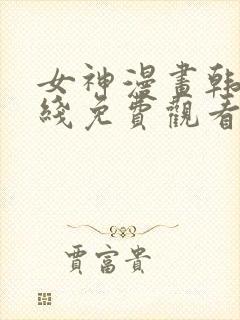 女神漫畫韩
綫免費觀看
賈富貴